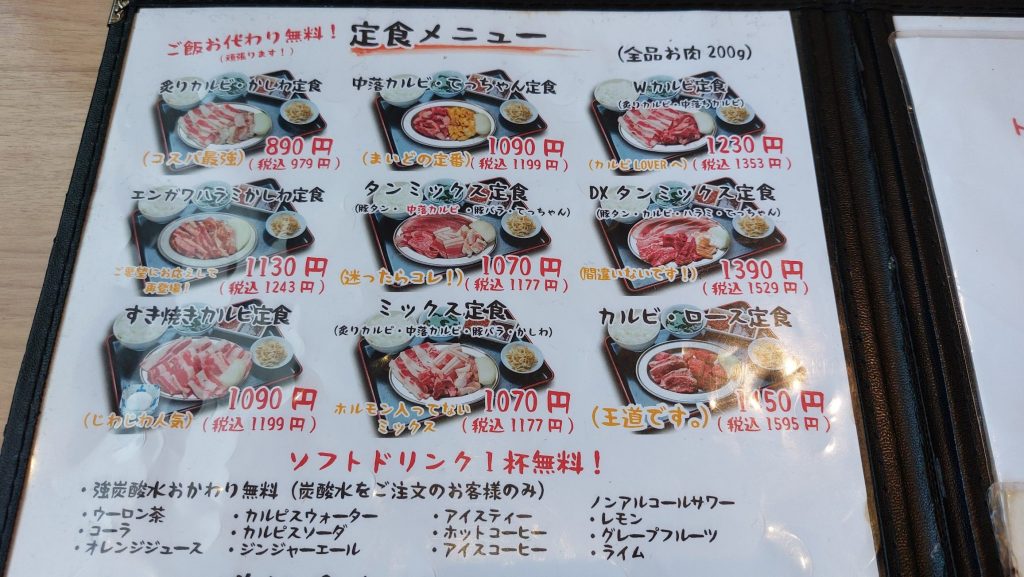 ご飯お代わり無料！
(頑張ります！)
定食メニュー
(全品お肉200g)
炙りカルビ・かしわ定食
(コスパ最強)
890円
(税込 979円)
中落カルビ・てっちゃん定食
(まいどの定番)
1090円
(税込 1199円)
Wカルビ定食
(炙りカルビ・中落ちカルビ)
(カルビLOVERへ)
1230円
(税込 1353円)
エンガワハラミかしわ定食
ご要望にお応えして
再登場！
1130円
(税込 1243円)
タンミックス定食
(豚タン・中落カルビ・豚バラ・てっちゃん)
(迷ったらコレ！)
1070円
(税込 1177円)
DXタンミックス定食
(豚タン・カルビ・ハラミ・てっちゃん)
(間違いないです！)
1390円
(税込 1529円)
すき焼きカルビ定食
(じわじわ人気)
1090円
(税込 1199円)
ミックス定食
(炙りカルビ・中落カルビ・豚バラ・かしわ)
ホルモン入ってない
ミックス
1070円
(税込 1177円)
カルビ・ロース定食
(王道です。)
1450円
(税込 1595円)
ソフトドリンク1杯無料！
・強炭酸水おかわり無料（炭酸水をご注文のお客様のみ）
・ウーロン茶
・コーラ
・オレンジジュース
・カルピスウォーター
・カルピスソーダ
・ジンジャーエール
・アイスティー
・ホットコーヒー
・アイスコーヒー
ノンアルコールサワー
・レモン
・グレープフルーツ
・ライム